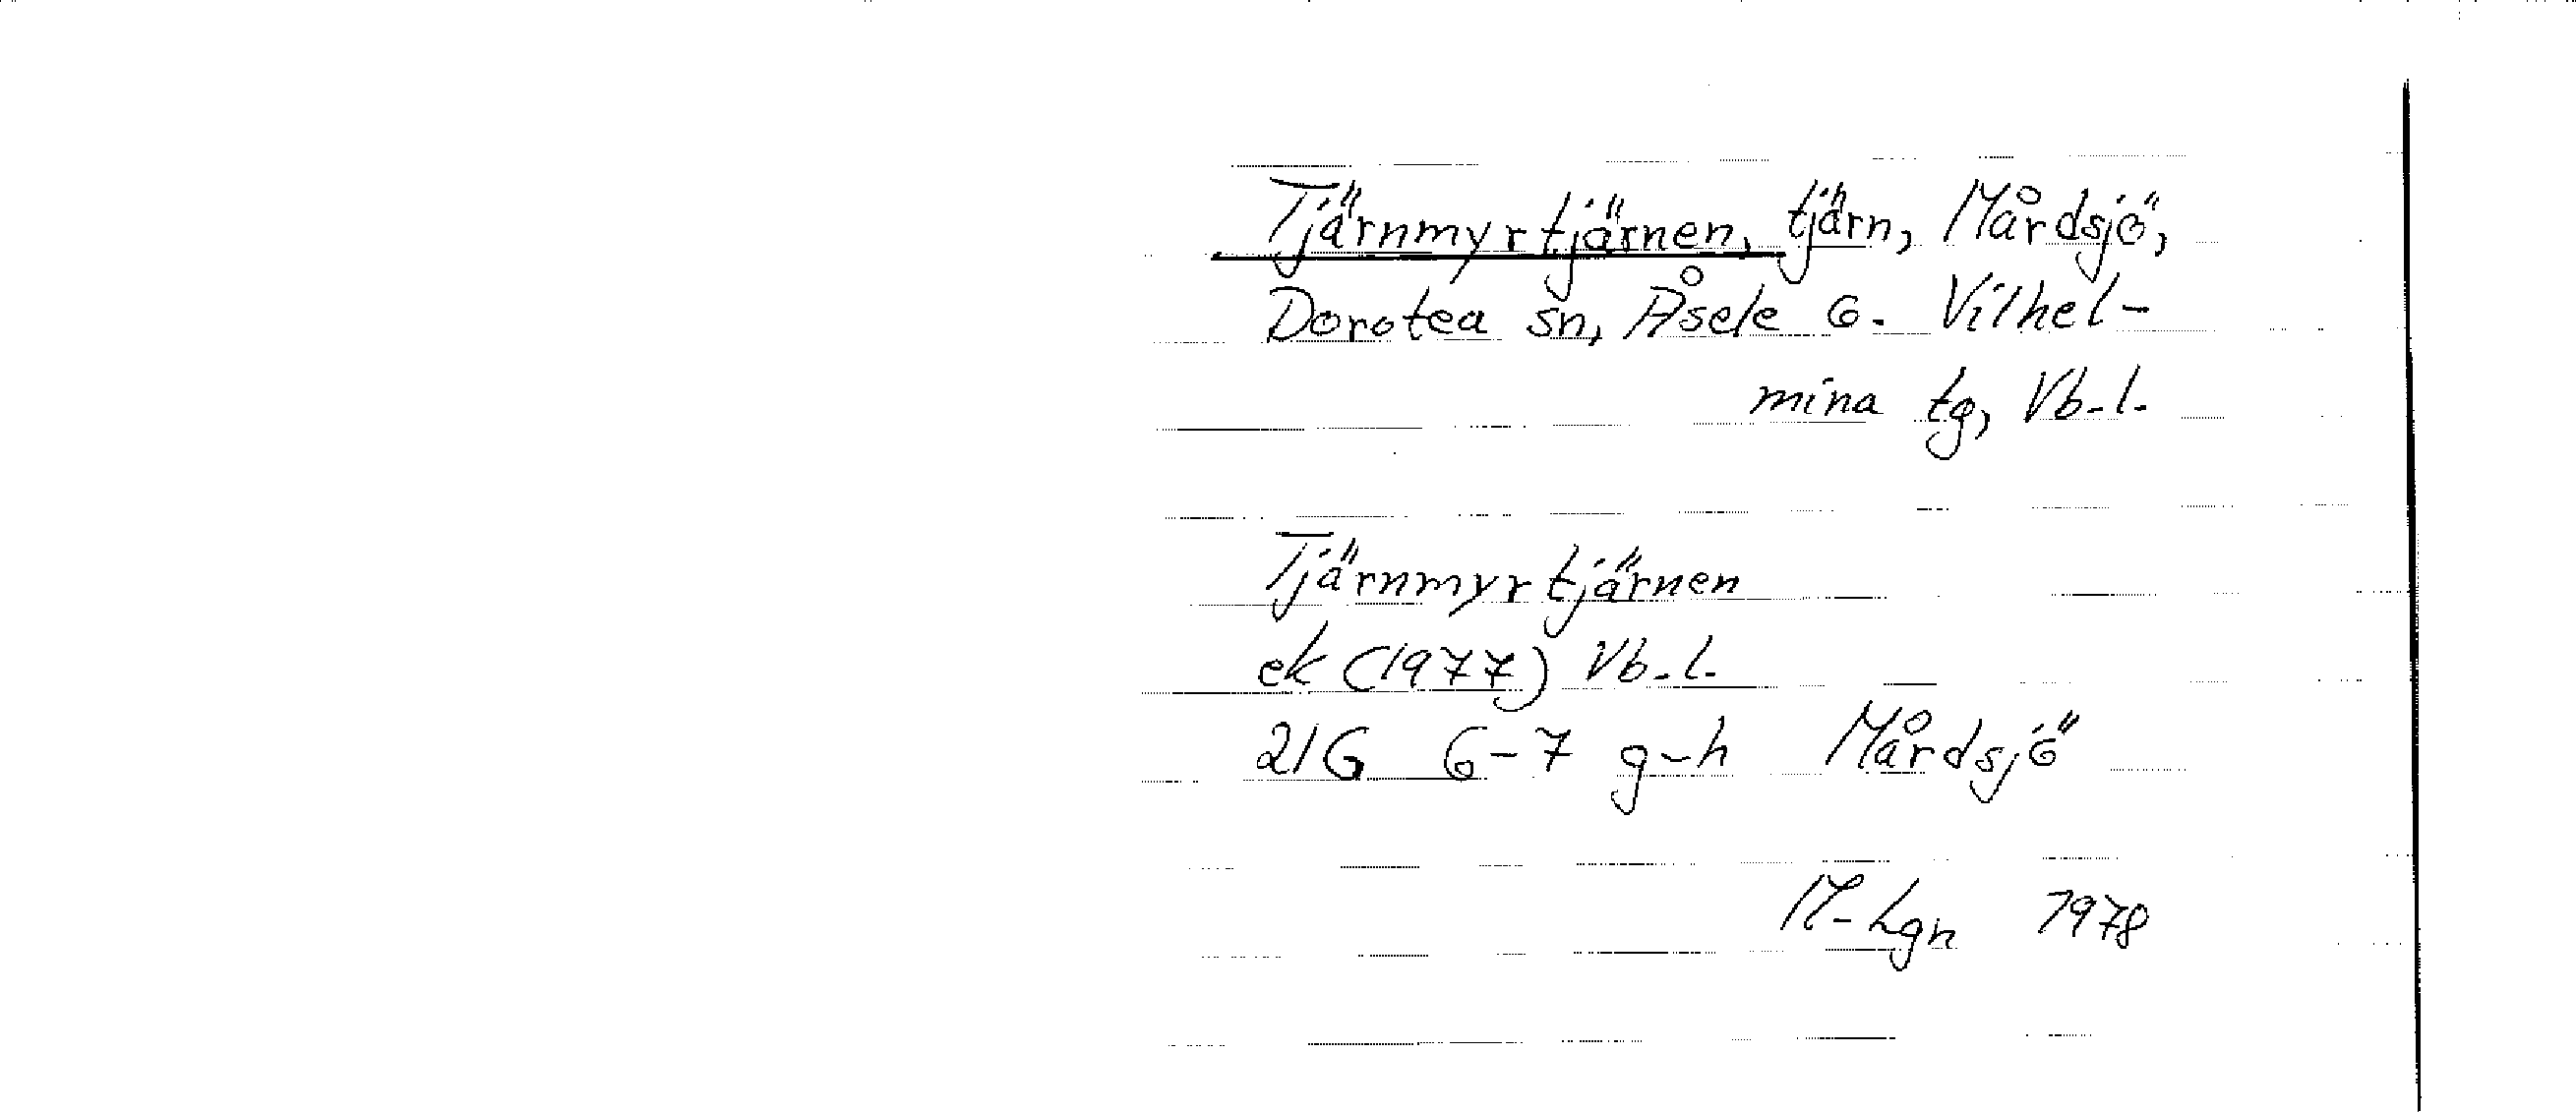 Tjärnmyrtjärnen, tjärn, Mårdsjö,
Dorotea sn, Åsele o. Vilhel-
mina tg, Vb. l.
Tjärnmyrtjärnen
ek (1977) Vb. l.
21G 6-7 g-h Mårdsjö
M-Lgn 1978